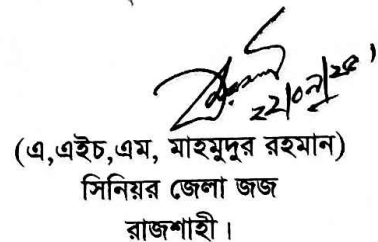 ২২/০৭/২৫
(এ,এইচ,এম, মাহমুদুর রহমান)
সিনিয়র জেলা জজ
রাজশাহী।